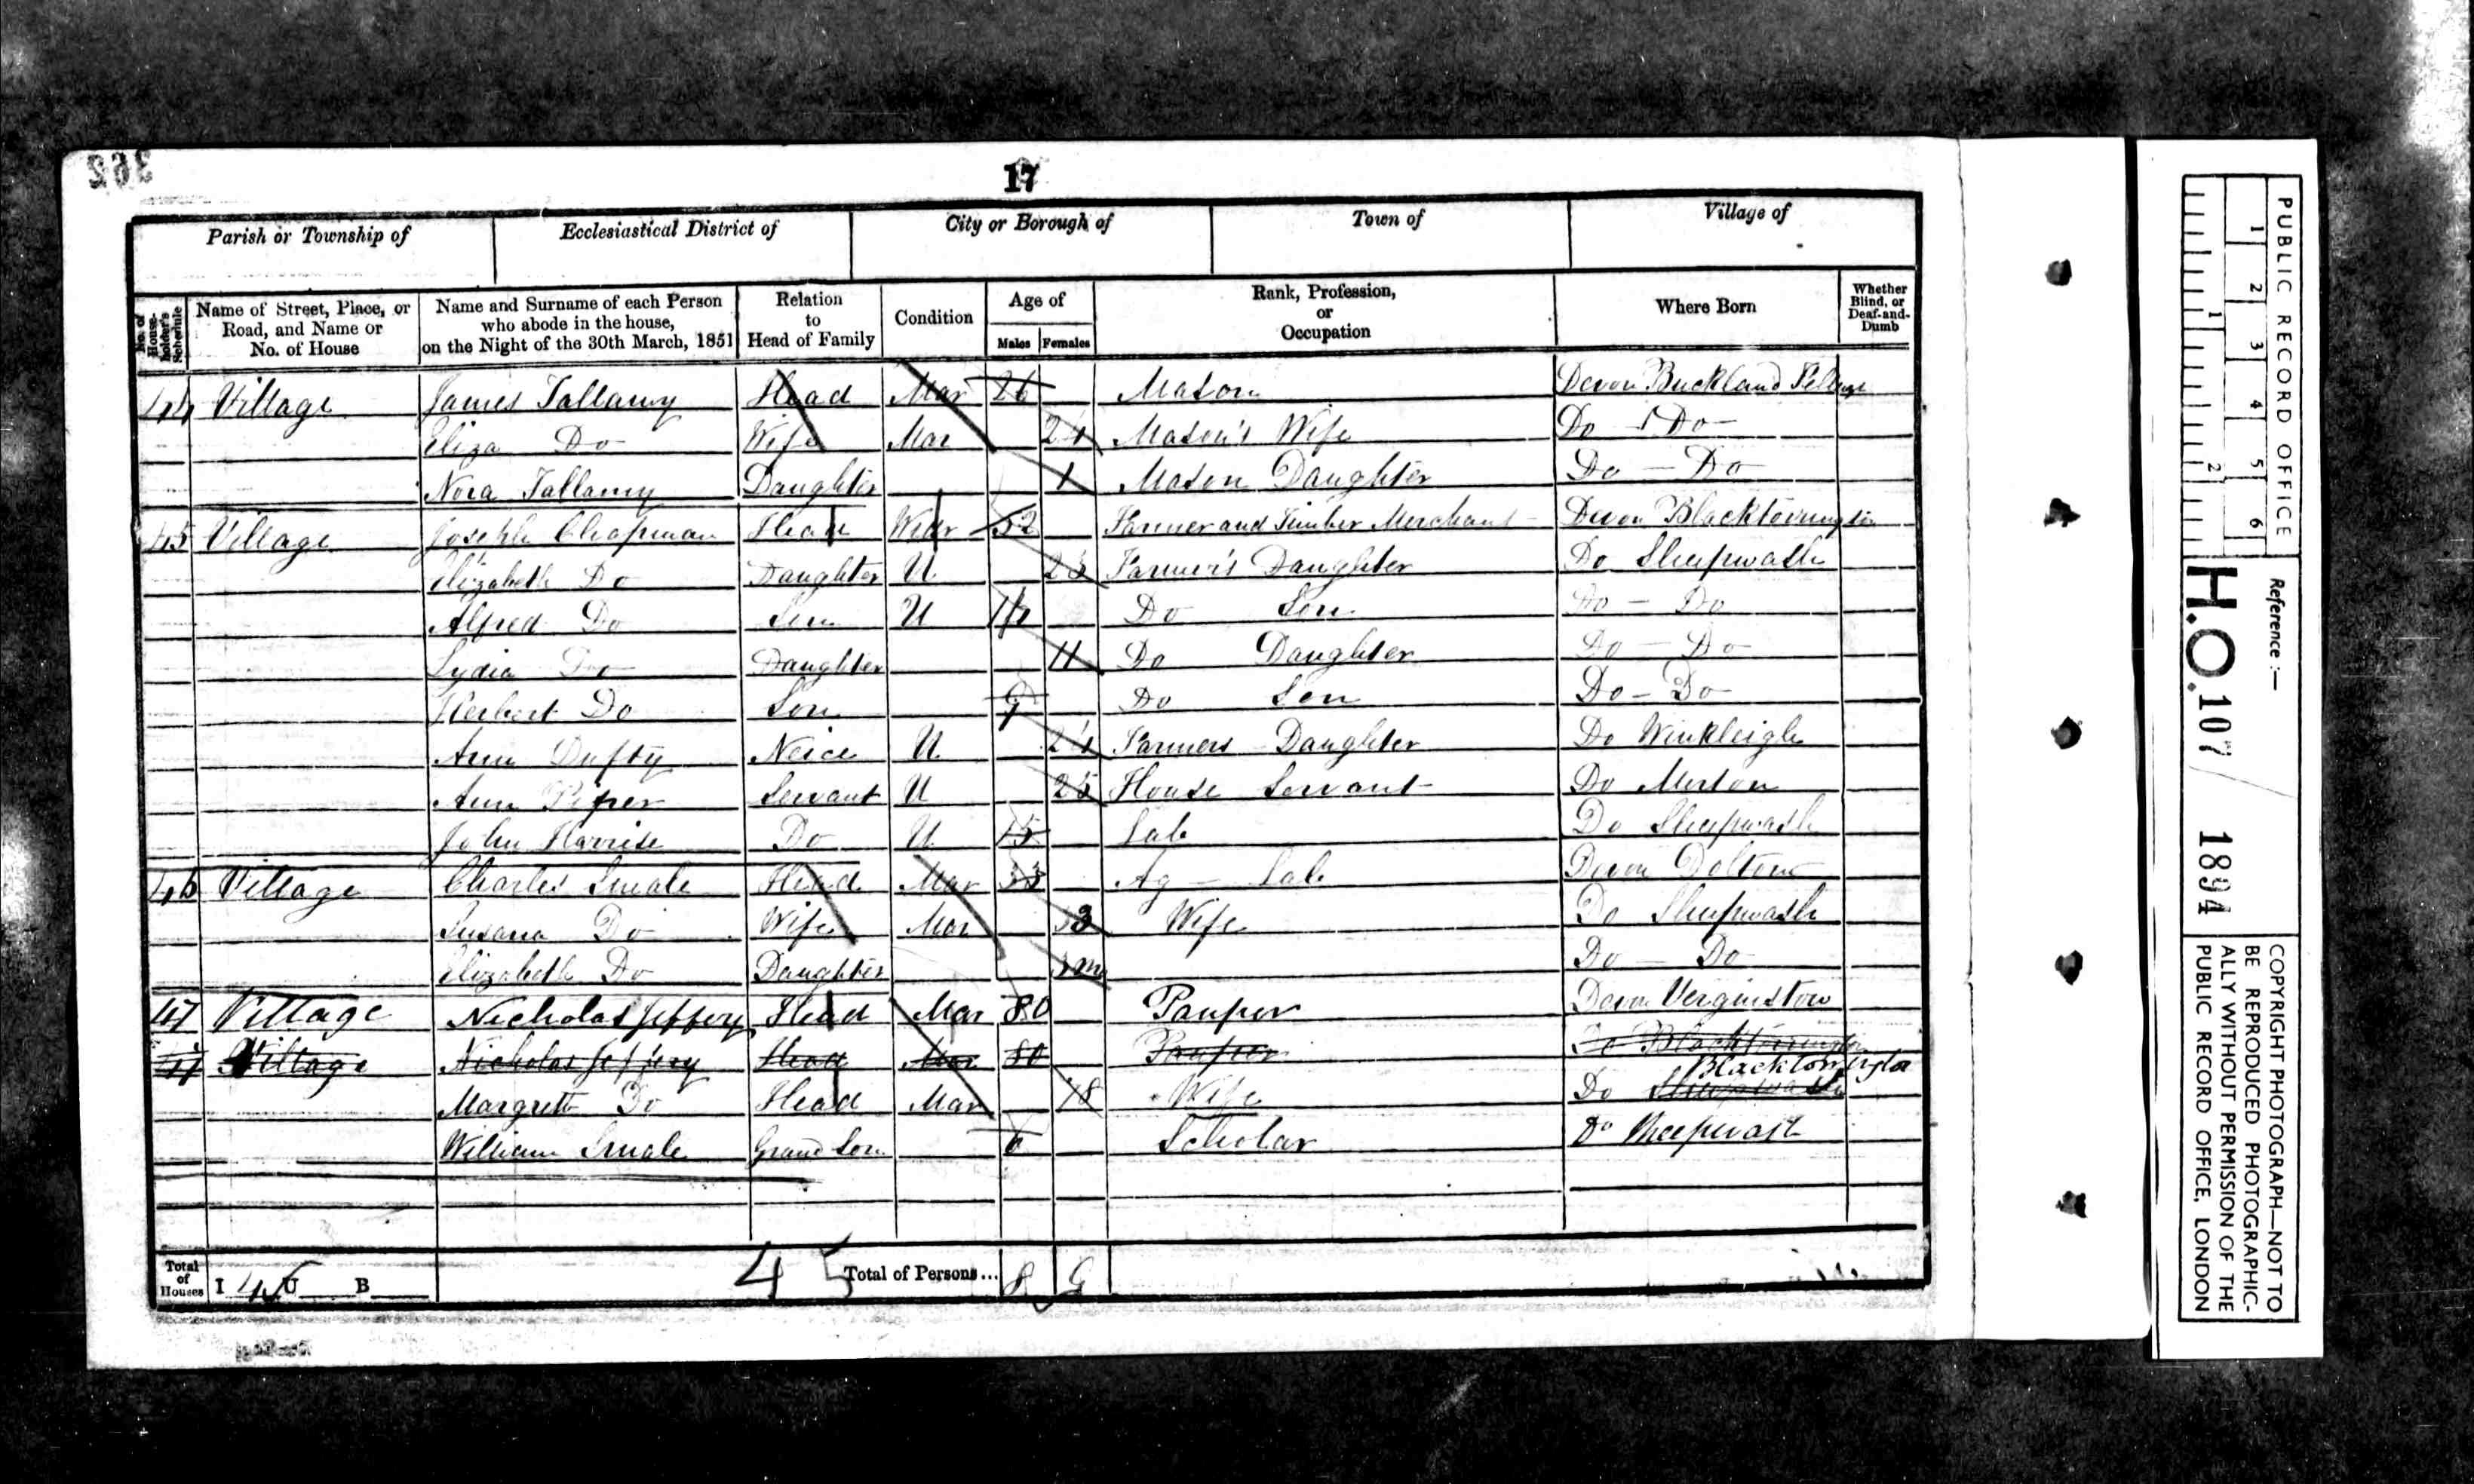 362
17
Parish or Township of Ecclesiastical District of City or Borough of Town of Village of
No. of House-holder's Schedule
Name of Street, Place, or Road, and Name or No. of House
Name and Surname of each Person who abode in the house, on the Night of the 30th March, 1851
Relation to Head of Family
Condition
Age of
Males Females
Rank, Profession, or Occupation
Where Born
Whether Blind, or Deaf-and-Dumb
44 Village James Tallamy Head Mar 26 Mason Devon Buckland
Eliza Do Wife Mar Mason's Wife Do Do
Nora Tallamy Daughter 1 Mason Daughter Do Do
45 Village Joseph Chapman Head Widr 52 Farmer and Timber Merchant Devon Blacktorrington
Elizabeth Do Daughter U 23 Farmer's Daughter Do Sheepwash
Alfred Do Son U Do Son Do Do
Lydia Do Daughter 11 Do Daughter Do Do
Herbert Do Son 9 Do Son Do Do
Ann Dufty Neice U Farmers Daughter Do Winkleigh
Ann Piper Servant U 25 House Servant Do Merton
John Harrise Do U 15 Lab Do Sheepwash
46 Village Charles Smale Head Mar 33 Ag Lab Devon Doltown
Susana Do Wife Mar Wife Do Sheepwash
Elizabeth Do Daughter Do Do
47 Village Nicholas Jeffery Head Mar 80 Pauper Devon Verginstow
47 Village Nicholas Jeffery Head Mar 80 Pauper Do Blacktorrington
Margrett Do Head Mar 78 Wife Do Sheepwash Blacktorrington
William Smale Grand Son 6 Scholar Do Sheepwash
Total of Houses I 4 U B 4 5 Total of Persons... 8 9
PUBLIC RECORD OFFICE
1 2 3 4 5 6
1 2
Reference :—
H.O. 107 / 1894
COPYRIGHT PHOTOGRAPH—NOT TO
BE REPRODUCED PHOTOGRAPHIC-
ALLY WITHOUT PERMISSION OF THE
PUBLIC RECORD OFFICE, LONDON